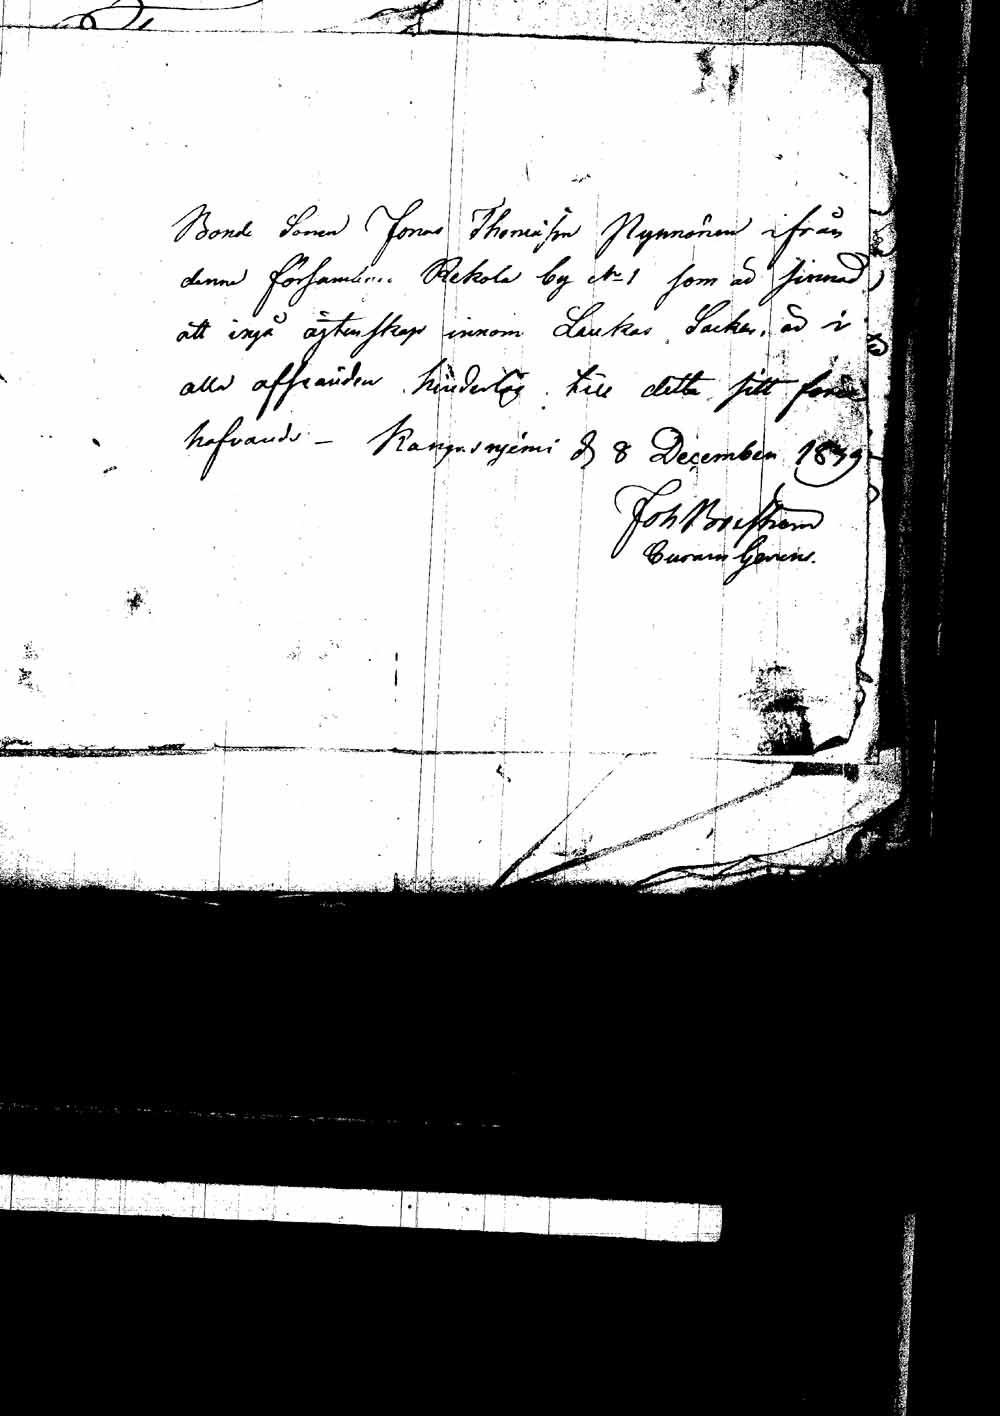 Bonde Sonen Jonas Thomasson Nynnönen ifrån
denne församling Rekola by No 1 som är sinnad
att ingå ägtenskap innom Laukas Socken, är i
alla afseenden hinderlös till detta sitt före
hafvande - Kangasniemi d 8 December 1839
Joh Broström
Curam Gerens.